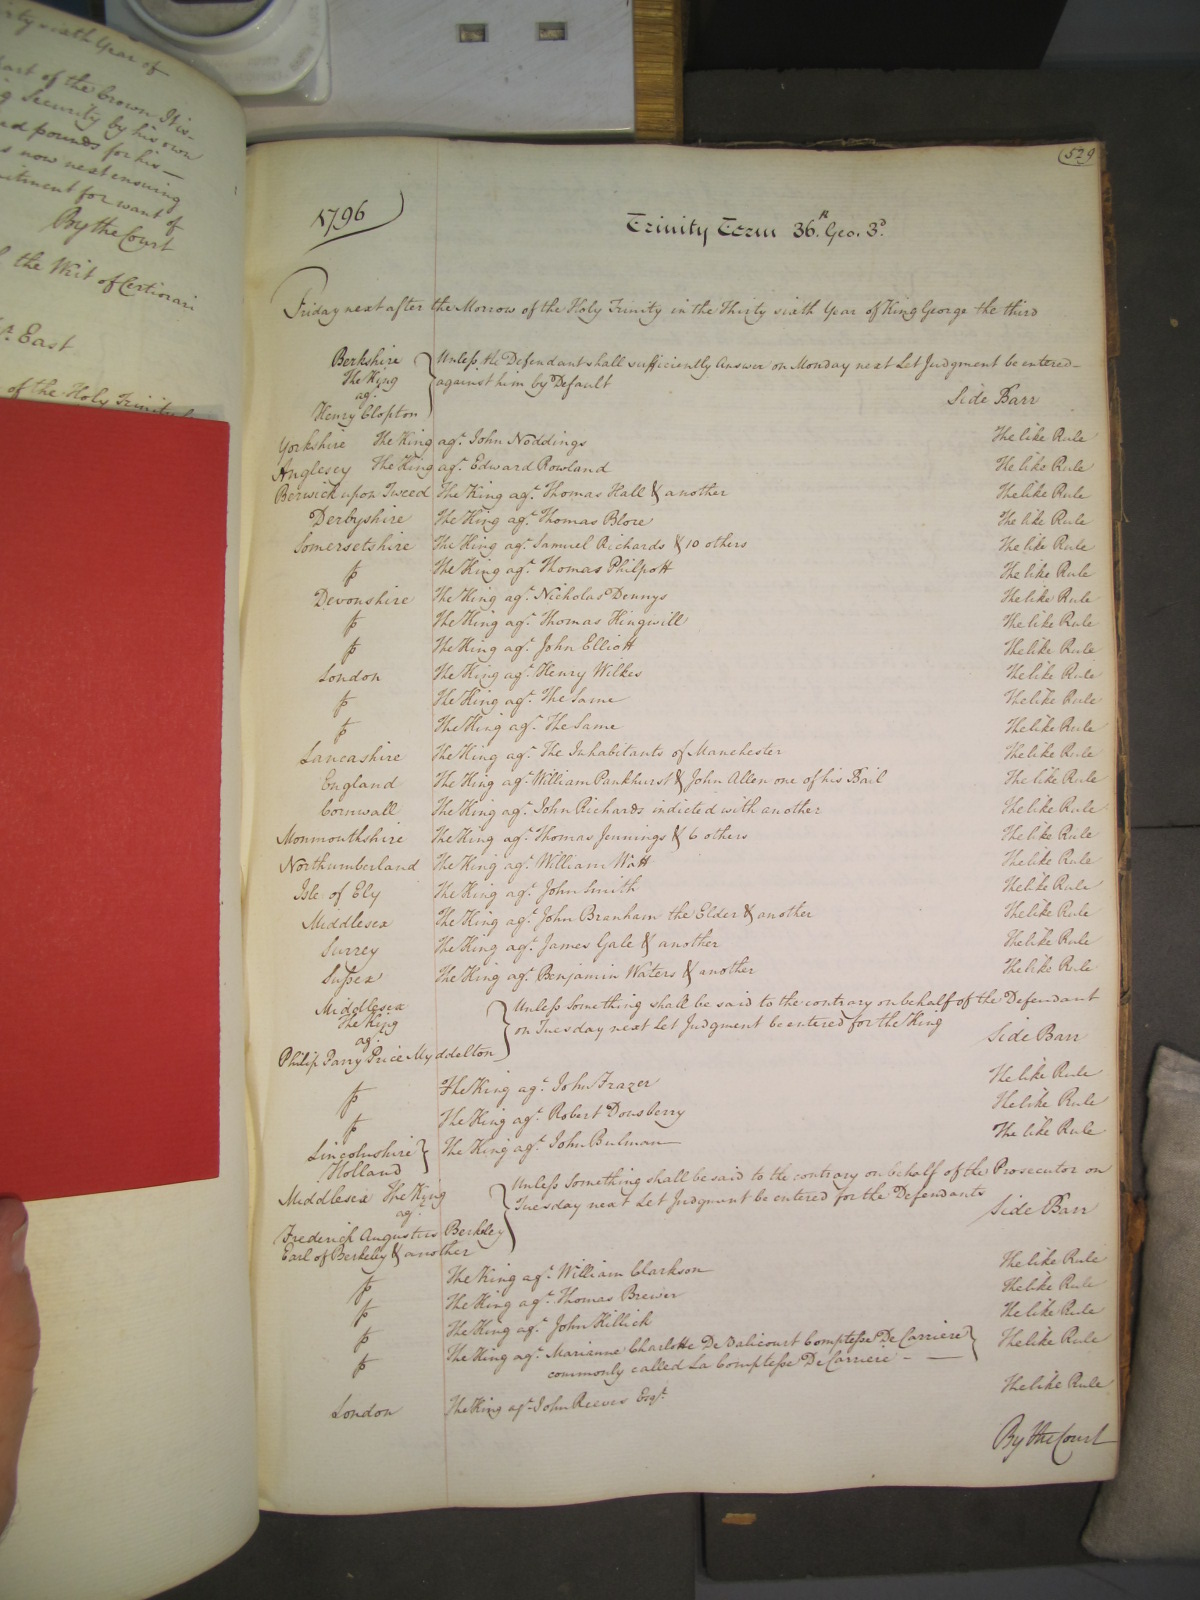 -rty sixth Year of
part of the Crown It is-
g Security by his own
and pounds for his —
s now next ensuing
mitment for want of
By the Court
the Writ of Certiorari
r. East
of the Holy Trinity
529
1796
Trinity Term 36.th Geo. 3d.
Friday next after the Morrow of the Holy Trinity in the Thirty sixth Year of King George the third
Berkshire
The King
agt.
Henry Clopton
Unless the Defendant shall sufficiently Answer on Monday next Let Judgment be entered
against him by Default
Side Barr
Yorkshire The King agt. John Noddings The like Rule
Anglesey The King agt. Edward Rowland The like Rule
Berwick upon Tweed The King agt. Thomas Hall & another The like Rule
Derbyshire The King agt. Thomas Blore The like Rule
Somersetshire The King agt. Samuel Richards & 10 others The like Rule
fs The King agt. Thomas Philpott The like Rule
Devonshire The King agt. Nicholas Dennys The like Rule
fs The King agt. Thomas Kingwill The like Rule
fs The King agt. John Elliott The like Rule
London The King agt. Henry Wilkes The like Rule
fs The King agt. The Same The like Rule
fs The King agt. The Same The like Rule
Lancashire The King agt. The Inhabitants of Manchester The like Rule
England The King agt. William Pankhurst & John Allen one of his Bail The like Rule
Cornwall The King agt. John Richards indicted with another The like Rule
Monmouthshire The King agt. Thomas Jennings & 6 others The like Rule
Northumberland The King agt. William Watt The like Rule
Isle of Ely The King agt. John Smith The like Rule
Middlesex The King agt. John Branham the Elder & another The like Rule
Surrey The King agt. James Gale & another The like Rule
Sussex The King agt. Benjamin Waters & another The like Rule
Middlesex
The King
agt.
Philip Parry Price Myddelton
Unless Something shall be said to the contrary on behalf of the Defendant
on Tuesday next Let Judgment be entered for the King
Side Barr
fs The King agt. John Frazer The like Rule
fs The King agt. Robert Dousberry The like Rule
Lincolnshire The King agt. John Bulman The like Rule
Holland
Middlesex The King
agt.
Frederick Augustus Berkley
Earl of Berkeley & another
Unless Something shall be said to the contrary on behalf of the Prosecutor on
Tuesday next Let Judgment be entered for the Defendants
Side Barr
fs The King agt. William Clarkson The like Rule
fs The King agt. Thomas Brewer The like Rule
fs The King agt. John Killick The like Rule
fs The King agt. Marianne Charlotte De Dalicourt Comptesse De Carriere The like Rule
commonly called La Comptesse De Carriere - —
London The King agt. John Reeves Esqr. The like Rule
By the Court